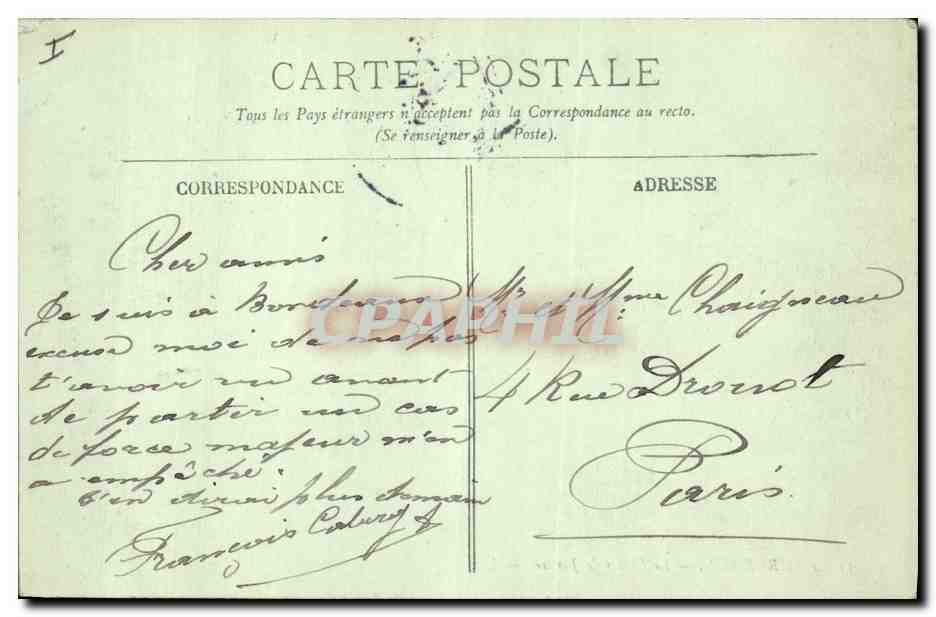 I
CARTE POSTALE
Tous les Pays étrangers n'acceptent pas la Correspondance au recto.
(Se renseigner à la Poste).
CORRESPONDANCE
Cher amis
Je suis à Bordeaux
excuse moi de ne pas
t'avoir vu avant
de partir un cas
de force majeur m'en
a empêché.
t'en dirai plus demain
François
ADRESSE
Mr et Mme Chaigneau
4 Rue Drouot
Paris
CPAPHIL